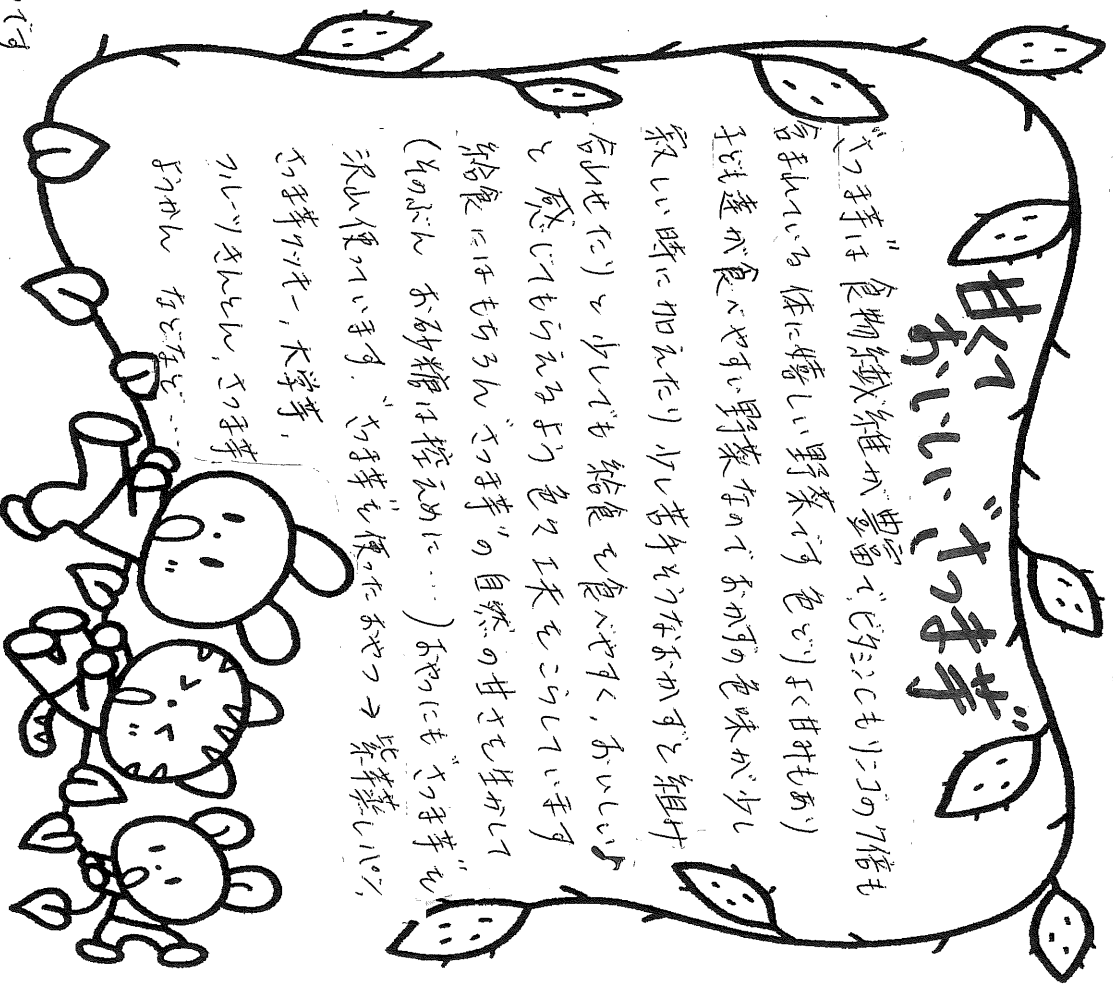 甘くて
おいしい"さつま芋"
"さつま芋"は 食物繊維が豊富でビタミンCもリンゴの7倍も
含まれている 体に嬉しい野菜です 色どりよく甘みもあり
子ども達が食べやすい野菜なので おかずの色味が少し
寂しい時に加えたり 少し苦手そうなおかずと組み
合わせたりと 少しでも 給食を食べやすく、おいしい♪
と 感じてもらえるよう 色々工夫をこらしています
給食にはもちろん"さつま芋"の自然の甘さを生かして
(そのぶん お砂糖は控えめに…)おやつにも"さつま芋"を
沢山使っています. "さつま芋"を使ったおやつ→紫芋蒸しパン,
さつま芋クッキー, 大学芋,
フルーツきんとん, さつま芋
ようかん などなど…
です